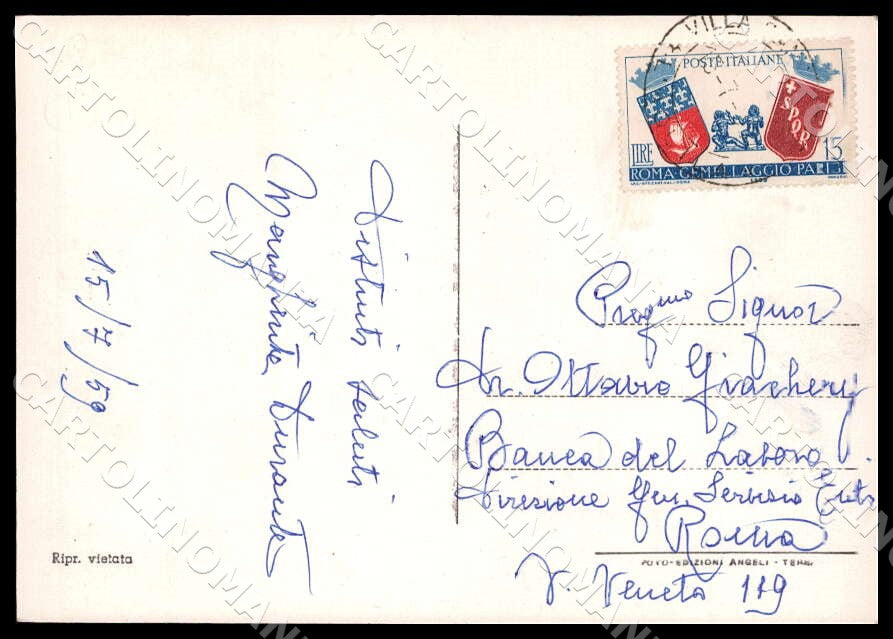 VILLA
POSTE ITALIANE
S.P.Q.R.
LIRE 15
ROMA GEMELLAGGIO PARIGI
Distinti saluti
Margherita Durante
15/7/59
Preg mo Signor
Dr. Ottavio
Banca del Lavoro
Direzione Gen. Servizio
Roma
V. Veneto 119
Ripr. vietata
FOTO-EDIZIONI ANGELI - TERNI
CARTOLINOMANIA